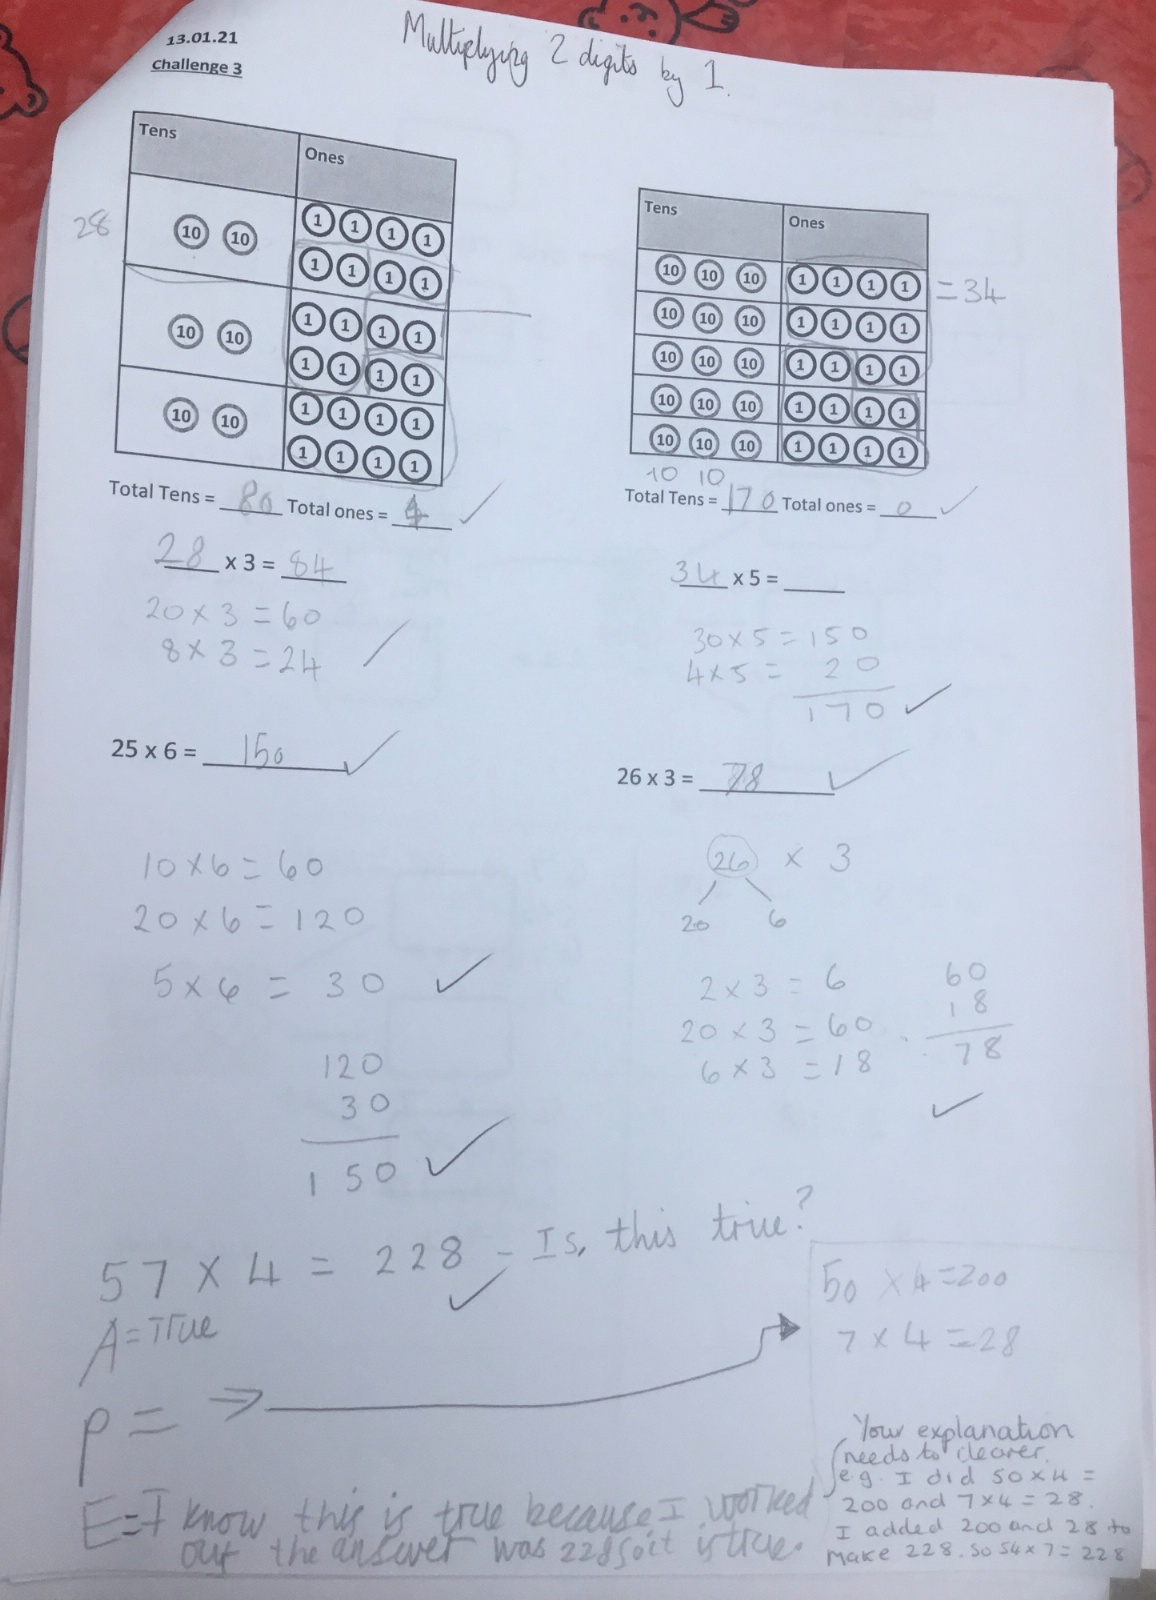 13.01.21
Challenge 3
Multiplying 2 digits by 1.
Tens Ones
28
10 10 1 1 1 1
1 1 1 1
10 10 1 1 1 1
1 1 1 1
10 10 1 1 1 1
1 1 1 1
Total Tens = 80 Total ones = 4
28 x 3 = 84
20 x 3 = 60
8 x 3 = 24
Tens Ones
10 10 10 1 1 1 1 = 34
10 10 10 1 1 1 1
10 10 10 1 1 1 1
10 10 10 1 1 1 1
10 10 10 1 1 1 1
10 10
Total Tens = 170 Total ones = 0
34 x 5 = ____
30 x 5 = 150
4 x 5 = 20
170
25 x 6 = 150
10 x 6 = 60
20 x 6 = 120
5 x 6 = 30
120
30
150
26 x 3 = 78
26 x 3
20 6
2 x 3 = 6
20 x 3 = 60
6 x 3 = 18
60
18
78
57 x 4 = 228 - Is, this true?
A = True
P = →
50 x 4 = 200
7 x 4 = 28
E = I know this is true because I worked
out the answer was 228 so it is true.
Your explanation
needs to clearer.
e.g. I did 50 x 4 =
200 and 7 x 4 = 28.
I added 200 and 28 to
make 228. So 54 x 7 = 228